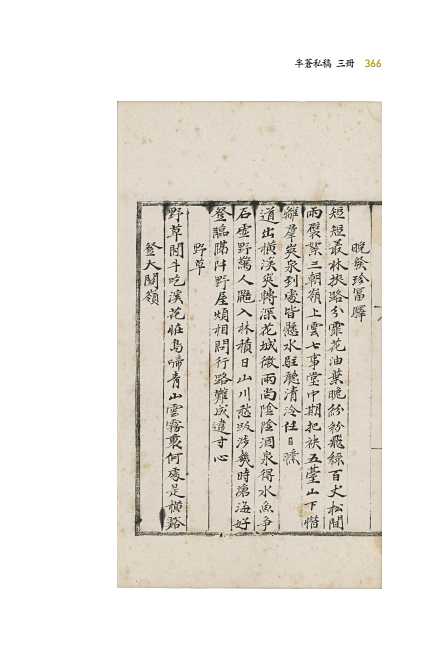 半蒼私稿 三冊 366
晚發珍富驛
短短叢林挾路分霏花油葉晚紛紛飛綠百丈松間
雨裂絮三朝嶺上雲七事堂中期把袂五臺山下惜
離羣爽泉到處皆懸水駐聽清泠任日曛
道出橫溪爽轉深花城微雨尚陰陰涸泉得水魚爭
石虛野驚人鼯入林積日山川愁跋涉幾時滄海好
登臨歸阡野屋頻相問行路難成違寸心
野草
野草閒斗吃溪花脏鳥啼青山雲霧裏何處是橫谿
登大關嶺